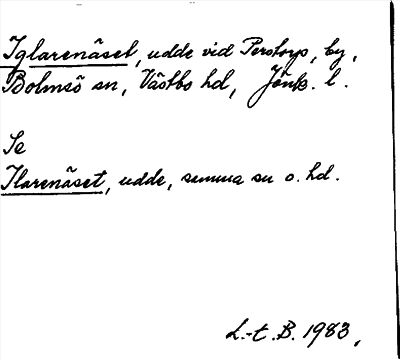 Iglarenäset, udde vid Perstorp, by,
Bolmsö sn, Västbo hd, Jönk. l.
Se
Ilarenäset, udde, samma sn o. hd.
L.-t. B. 1983,